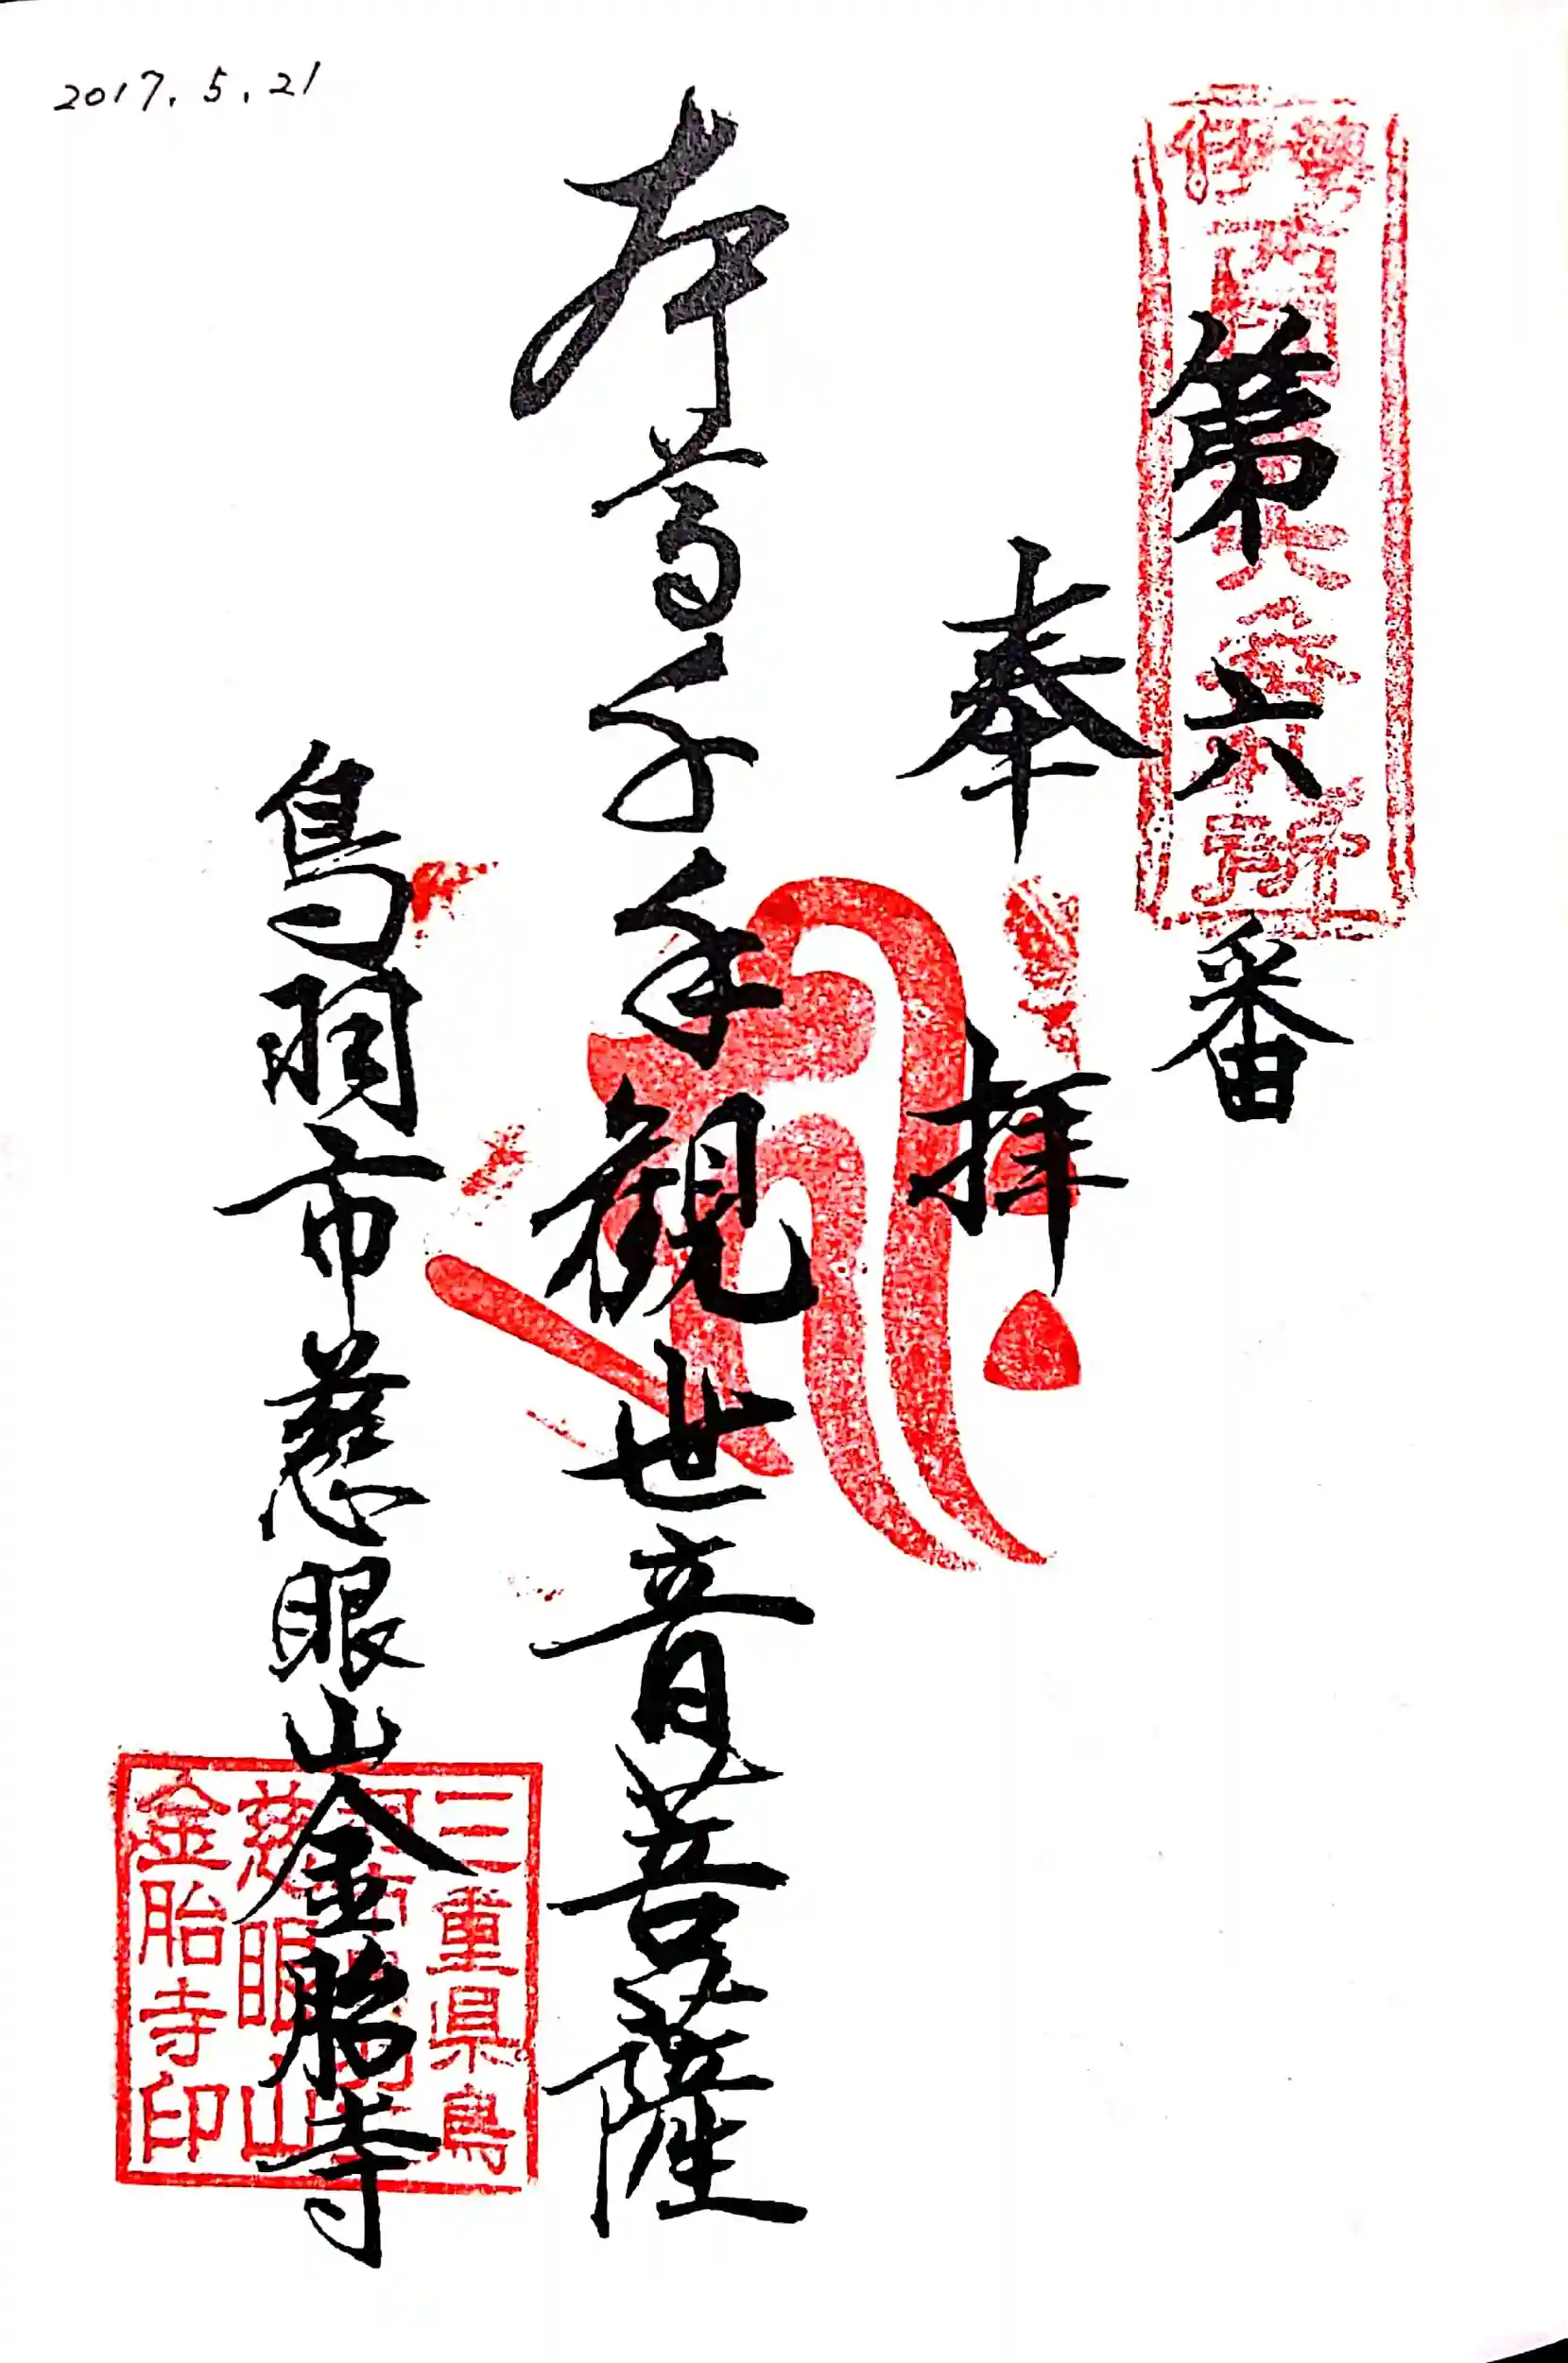 2017.5.21
伊勢西国第六番札所
第六番
奉拝
本尊千手観世音菩薩
鳥羽市慈眼山金胎寺
三重県鳥
慈眼山
金胎寺印